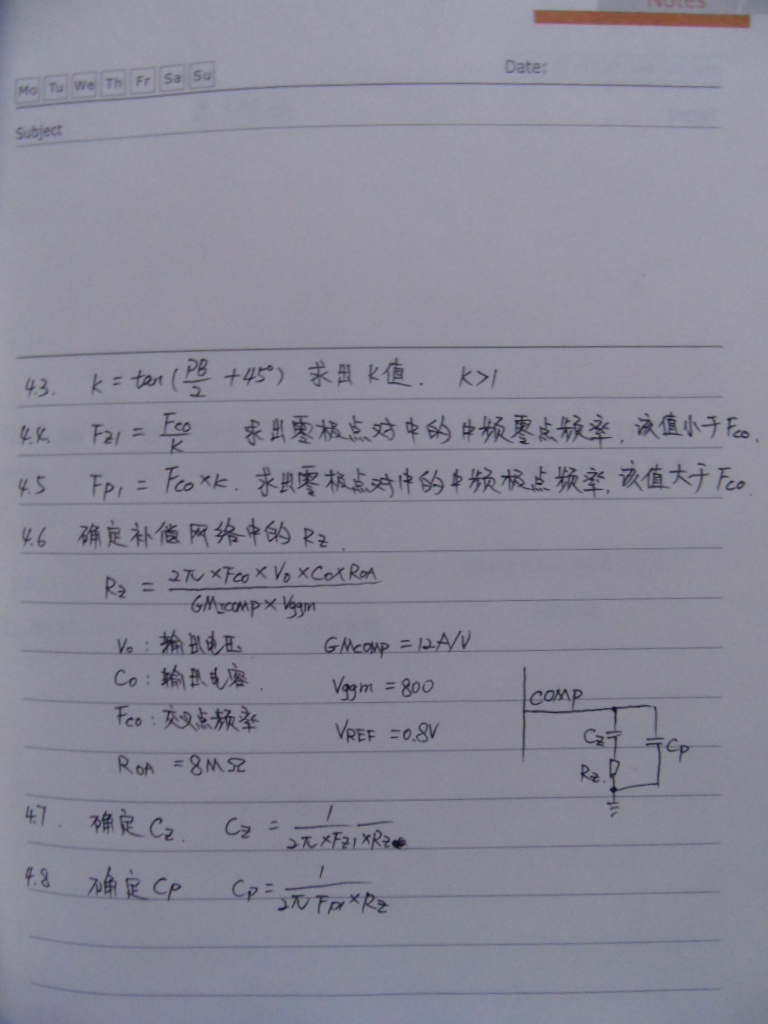 Notes
Mo Tu We Th Fr Sa Su
Date:
Subject
4.3. K = tan (PB/2 + 45°) 求出 K值. K>1
4.4. Fz1 = Fco/K 求出零极点对中的中频零点频率, 该值小于Fco.
4.5 Fp1 = Fco×K. 求出零极点对中的中频极点频率, 该值大于Fco.
4.6 确定补偿网络中的 Rz.
Rz = 2π×Fco×Vo×Co×ROA / GMcomp×Vggm
Vo: 输出电压 GMcomp = 12A/V
Co: 输出电容 Vggm = 800
Fco: 交叉点频率 VREF = 0.8V
ROA = 8MΩ
COMP
Cz Cp
Rz.
4.7. 确定 Cz. Cz = 1 / 2π×Fz1×Rz
4.8 确定 Cp Cp = 1 / 2π Fp1×Rz